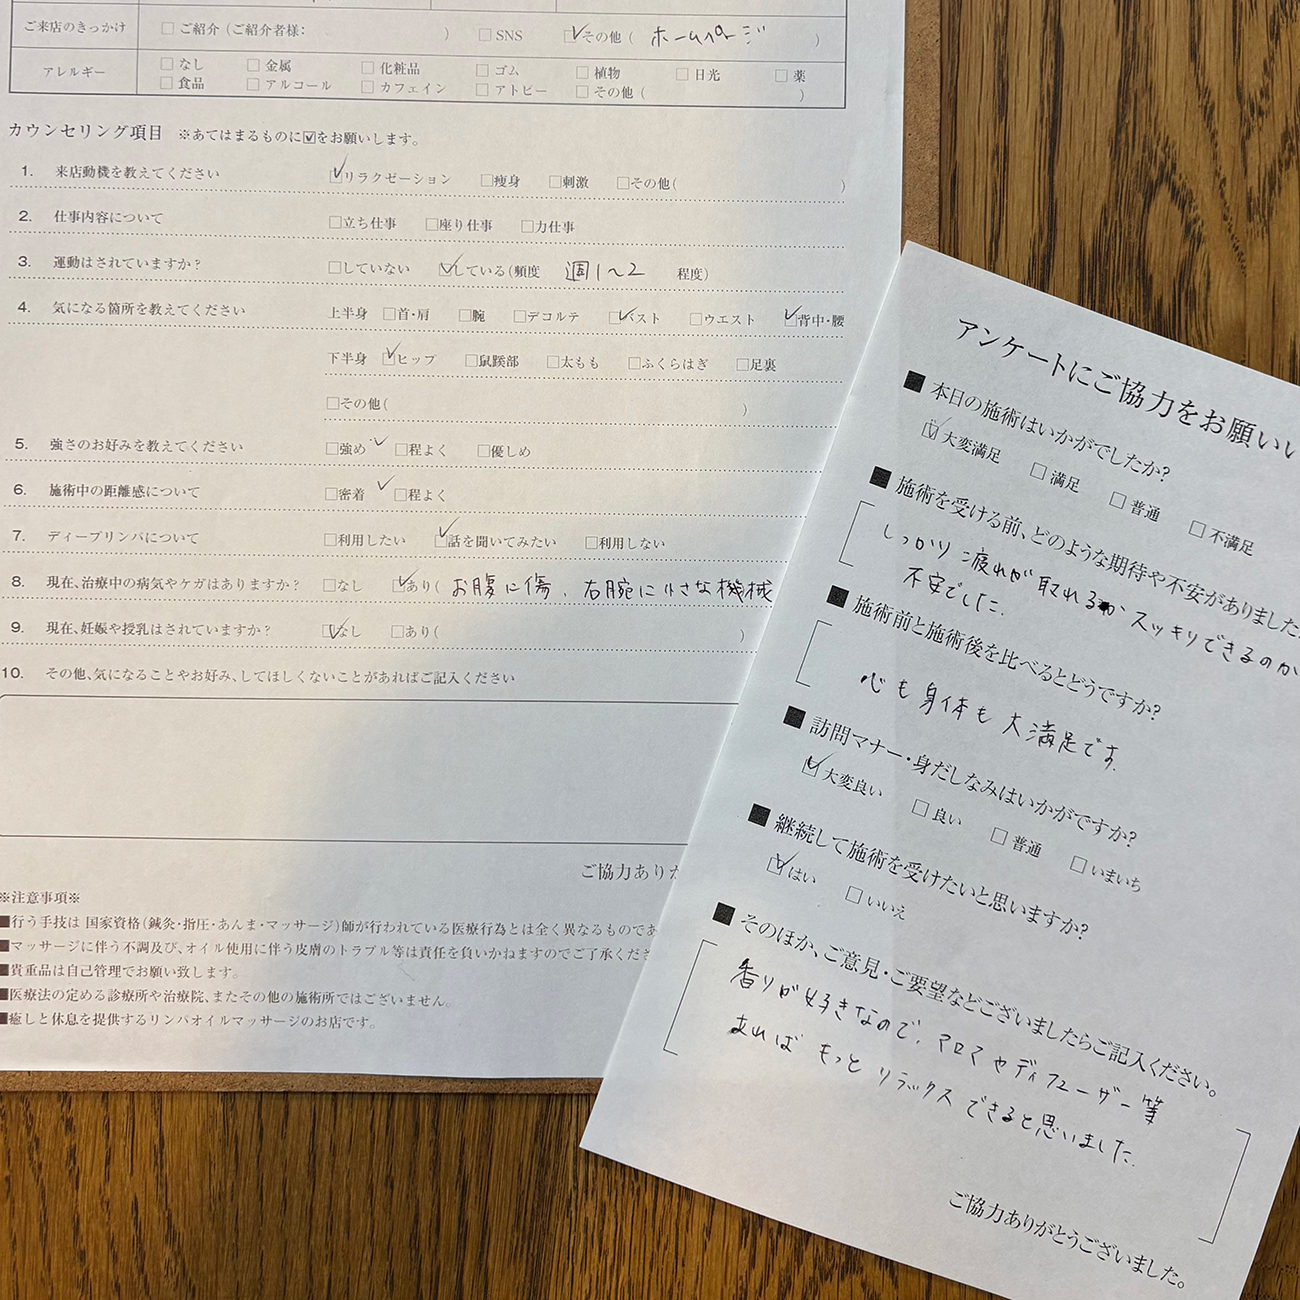 ご来店のきっかけ □ご紹介（ご紹介者様： ） □SNS ☑その他（ ホームページ ）
アレルギー □なし □金属 □化粧品 □ゴム □植物 □日光 □薬
□食品 □アルコール □カフェイン □アトピー □その他（ ）
カウンセリング項目 ※あてはまるものに☑をお願いします。
1. 来店動機を教えてください ☑リラクゼーション □痩身 □刺激 □その他( )
2. 仕事内容について □立ち仕事 □座り仕事 □力仕事
3. 運動はされていますか？ □していない ☑している(頻度 週1〜2 程度)
4. 気になる箇所を教えてください 上半身 □首・肩 □腕 □デコルテ ☑バスト □ウエスト ☑背中・腰
下半身 ☑ヒップ □鼠蹊部 □太もも □ふくらはぎ □足裏
□その他( )
5. 強さのお好みを教えてください □強め ☑程よく □優しめ
6. 施術中の距離感について □密着 ☑程よく
7. ディープリンパについて □利用したい ☑話を聞いてみたい □利用しない
8. 現在、治療中の病気やケガはありますか？ □なし ☑あり( お腹に傷、右腕に小さな機械
9. 現在、妊娠や授乳はされていますか？ ☑なし □あり( )
10. その他、気になることやお好み、してほしくないことがあればご記入ください
ご協力ありた
※注意事項※
■行う手技は 国家資格(鍼灸・指圧・あんま・マッサージ)師が行われている医療行為とは全く異なるものであ
■マッサージに伴う不調及び、オイル使用に伴う皮膚のトラブル等は責任を負いかねますのでご了承くださ
■貴重品は自己管理でお願い致します。
■医療法の定める診療所や治療院、またその他の施術所ではございません。
■癒しと休息を提供するリンパオイルマッサージのお店です。
アンケートにご協力をお願いい
■ 本日の施術はいかがでしたか？
☑大変満足 □満足 □普通 □不満足
■ 施術を受ける前、どのような期待や不安がありました
しっかり疲れが取れるか スッキリできるのか
不安でした。
■ 施術前と施術後を比べるとどうですか？
心も身体も大満足です。
■ 訪問マナー・身だしなみはいかがですか？
☑大変良い □良い □普通 □いまいち
■ 継続して施術を受けたいと思いますか？
☑はい □いいえ
■ そのほか、ご意見・ご要望などございましたらご記入ください。
香りが好きなので、アロマやディフューザー等
あれば もっとリラックスできると思いました。
ご協力ありがとうございました。